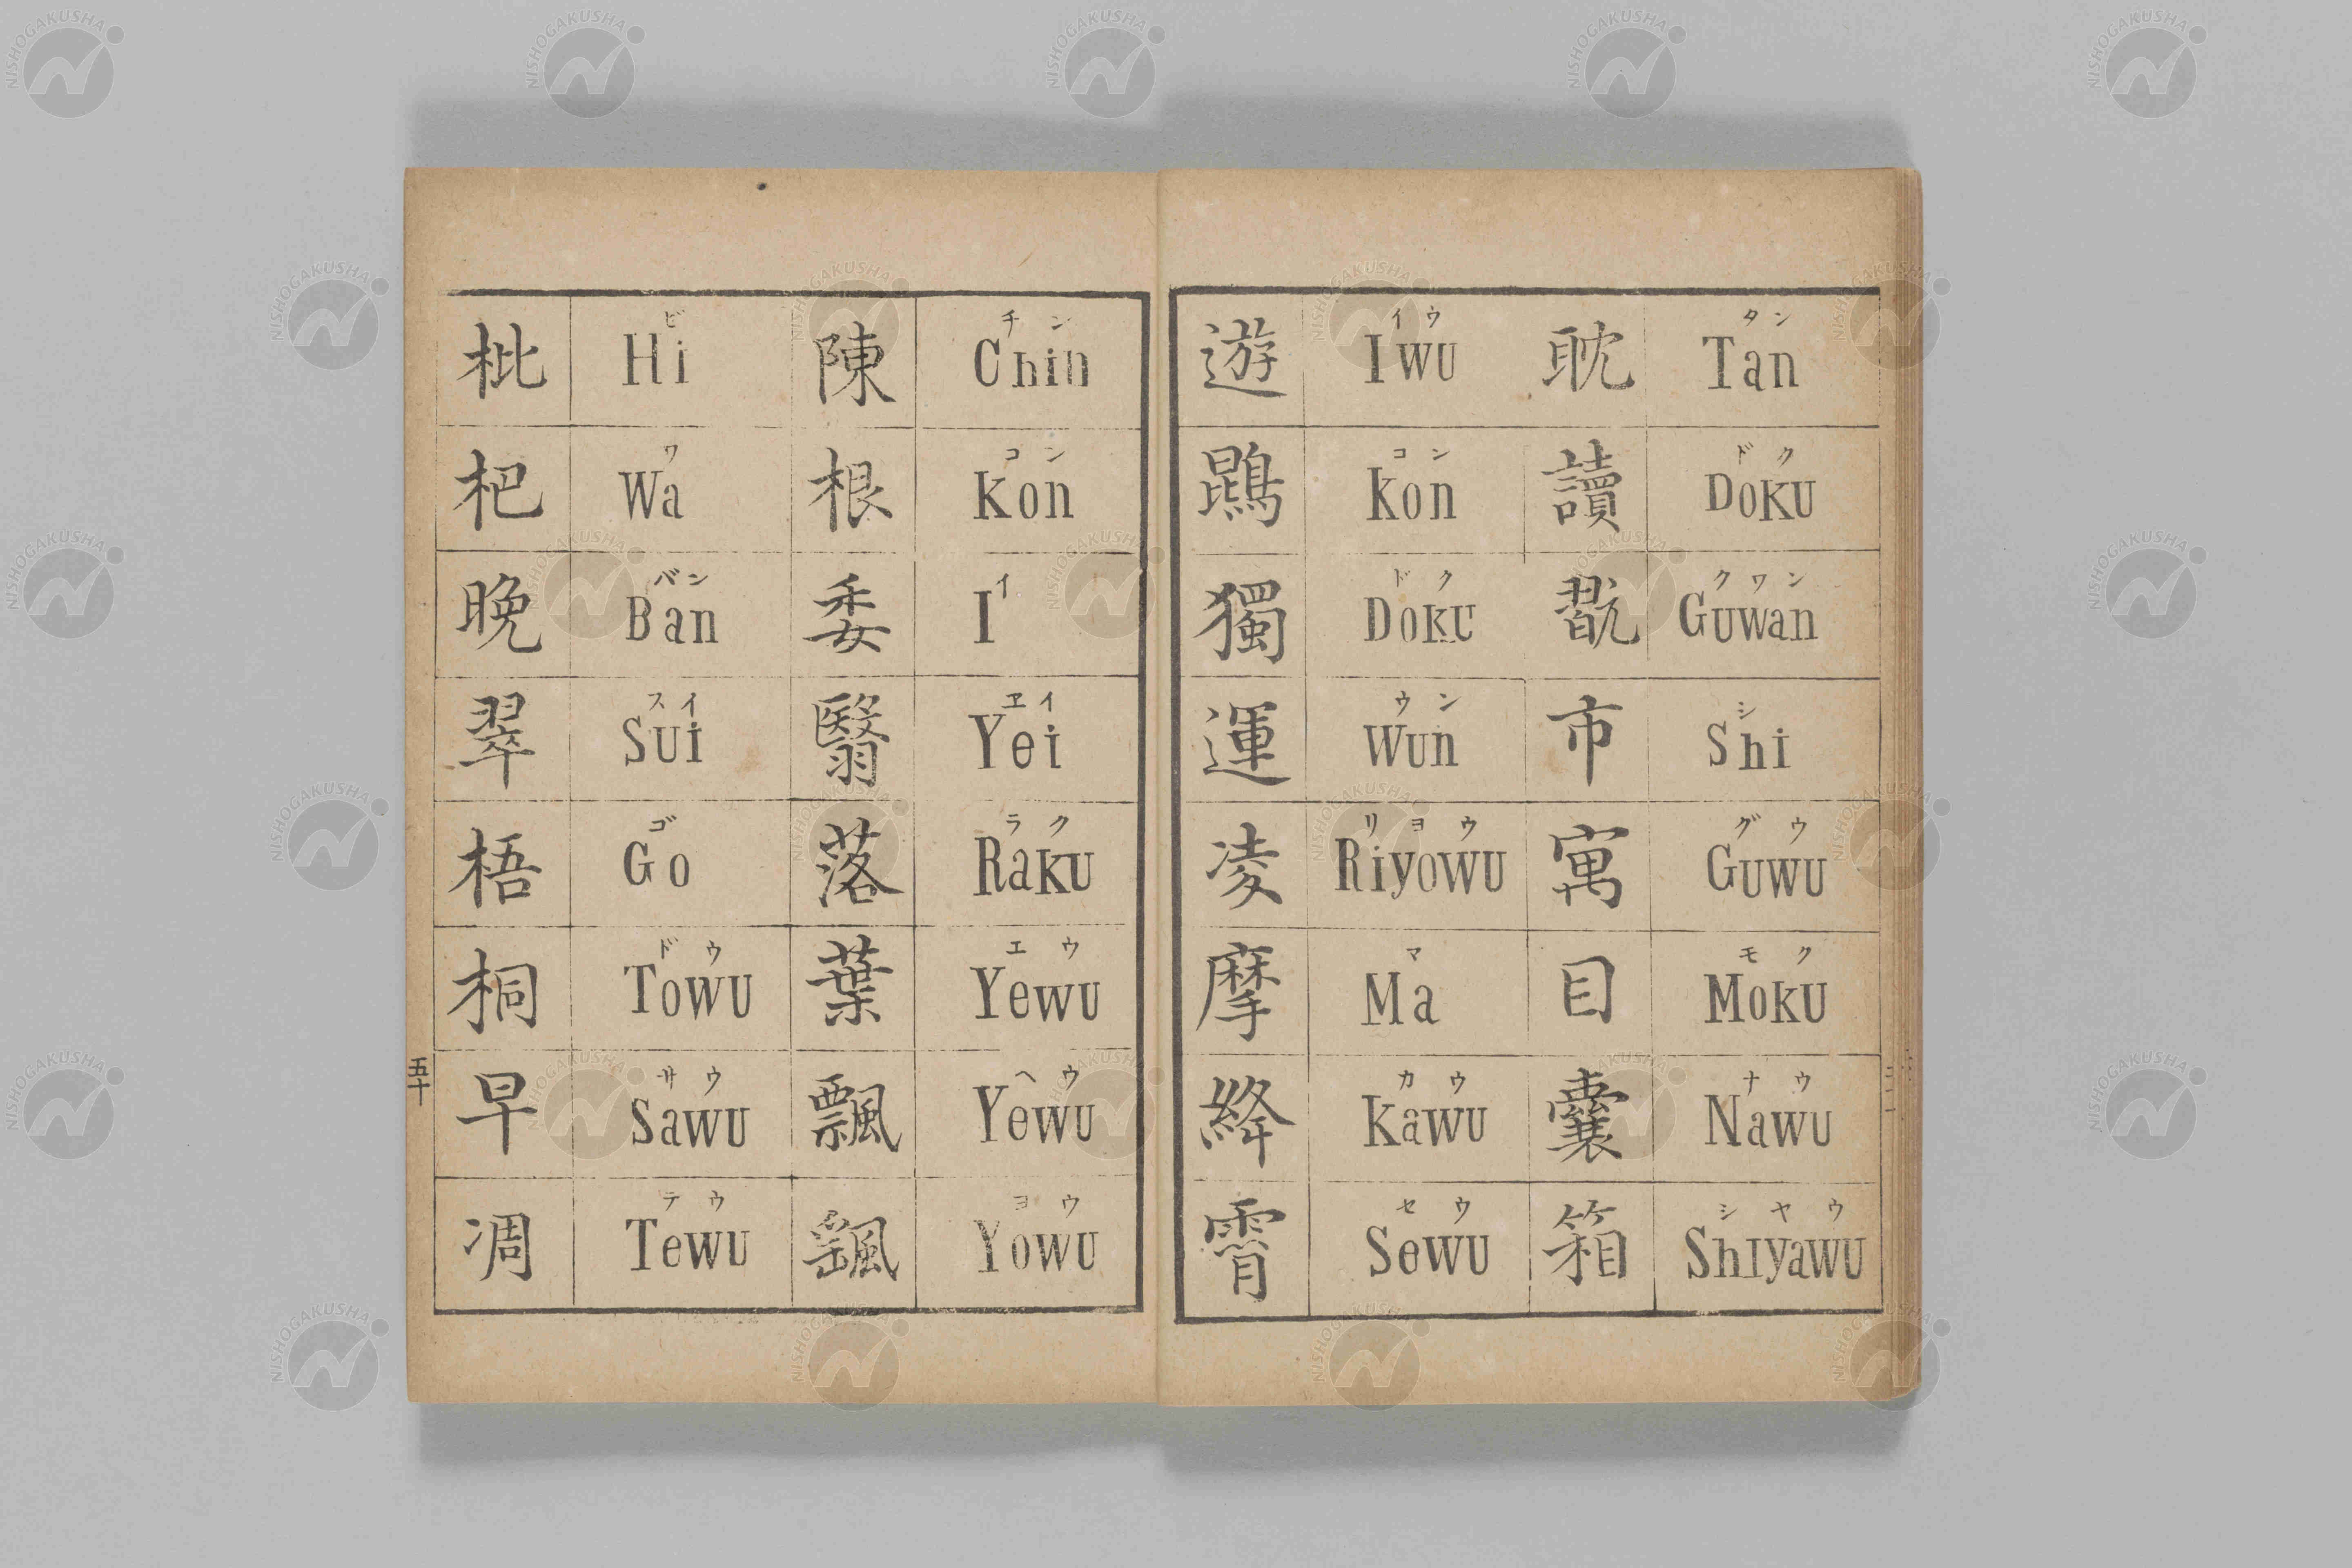 枇杷晚翠梧桐早凋
ビ
Hi
ワ
Wa
バン
Ban
スイ
Sui
ゴ
Go
ドウ
Towu
サウ
Sawu
テウ
Tewu
陳根委翳落葉飄颻
チン
Chin
コン
Kon
イ
I
ヱイ
Yei
ラク
Raku
エウ
Yewu
ヘウ
Yewu
ヨウ
Yowu
五十
遊鵾獨運凌摩絳霄
イウ
Iwu
コン
kon
ドク
Doku
ウン
Wun
リヨウ
Riyowu
マ
Ma
カウ
Kawu
セウ
Sewu
耽讀翫市寓目囊箱
タン
Tan
ドク
Doku
クワン
Guwan
シ
Shi
グウ
Guwu
モク
Moku
ナウ
Nawu
シヤウ
Shiyawu
NISHOGAKUSHA